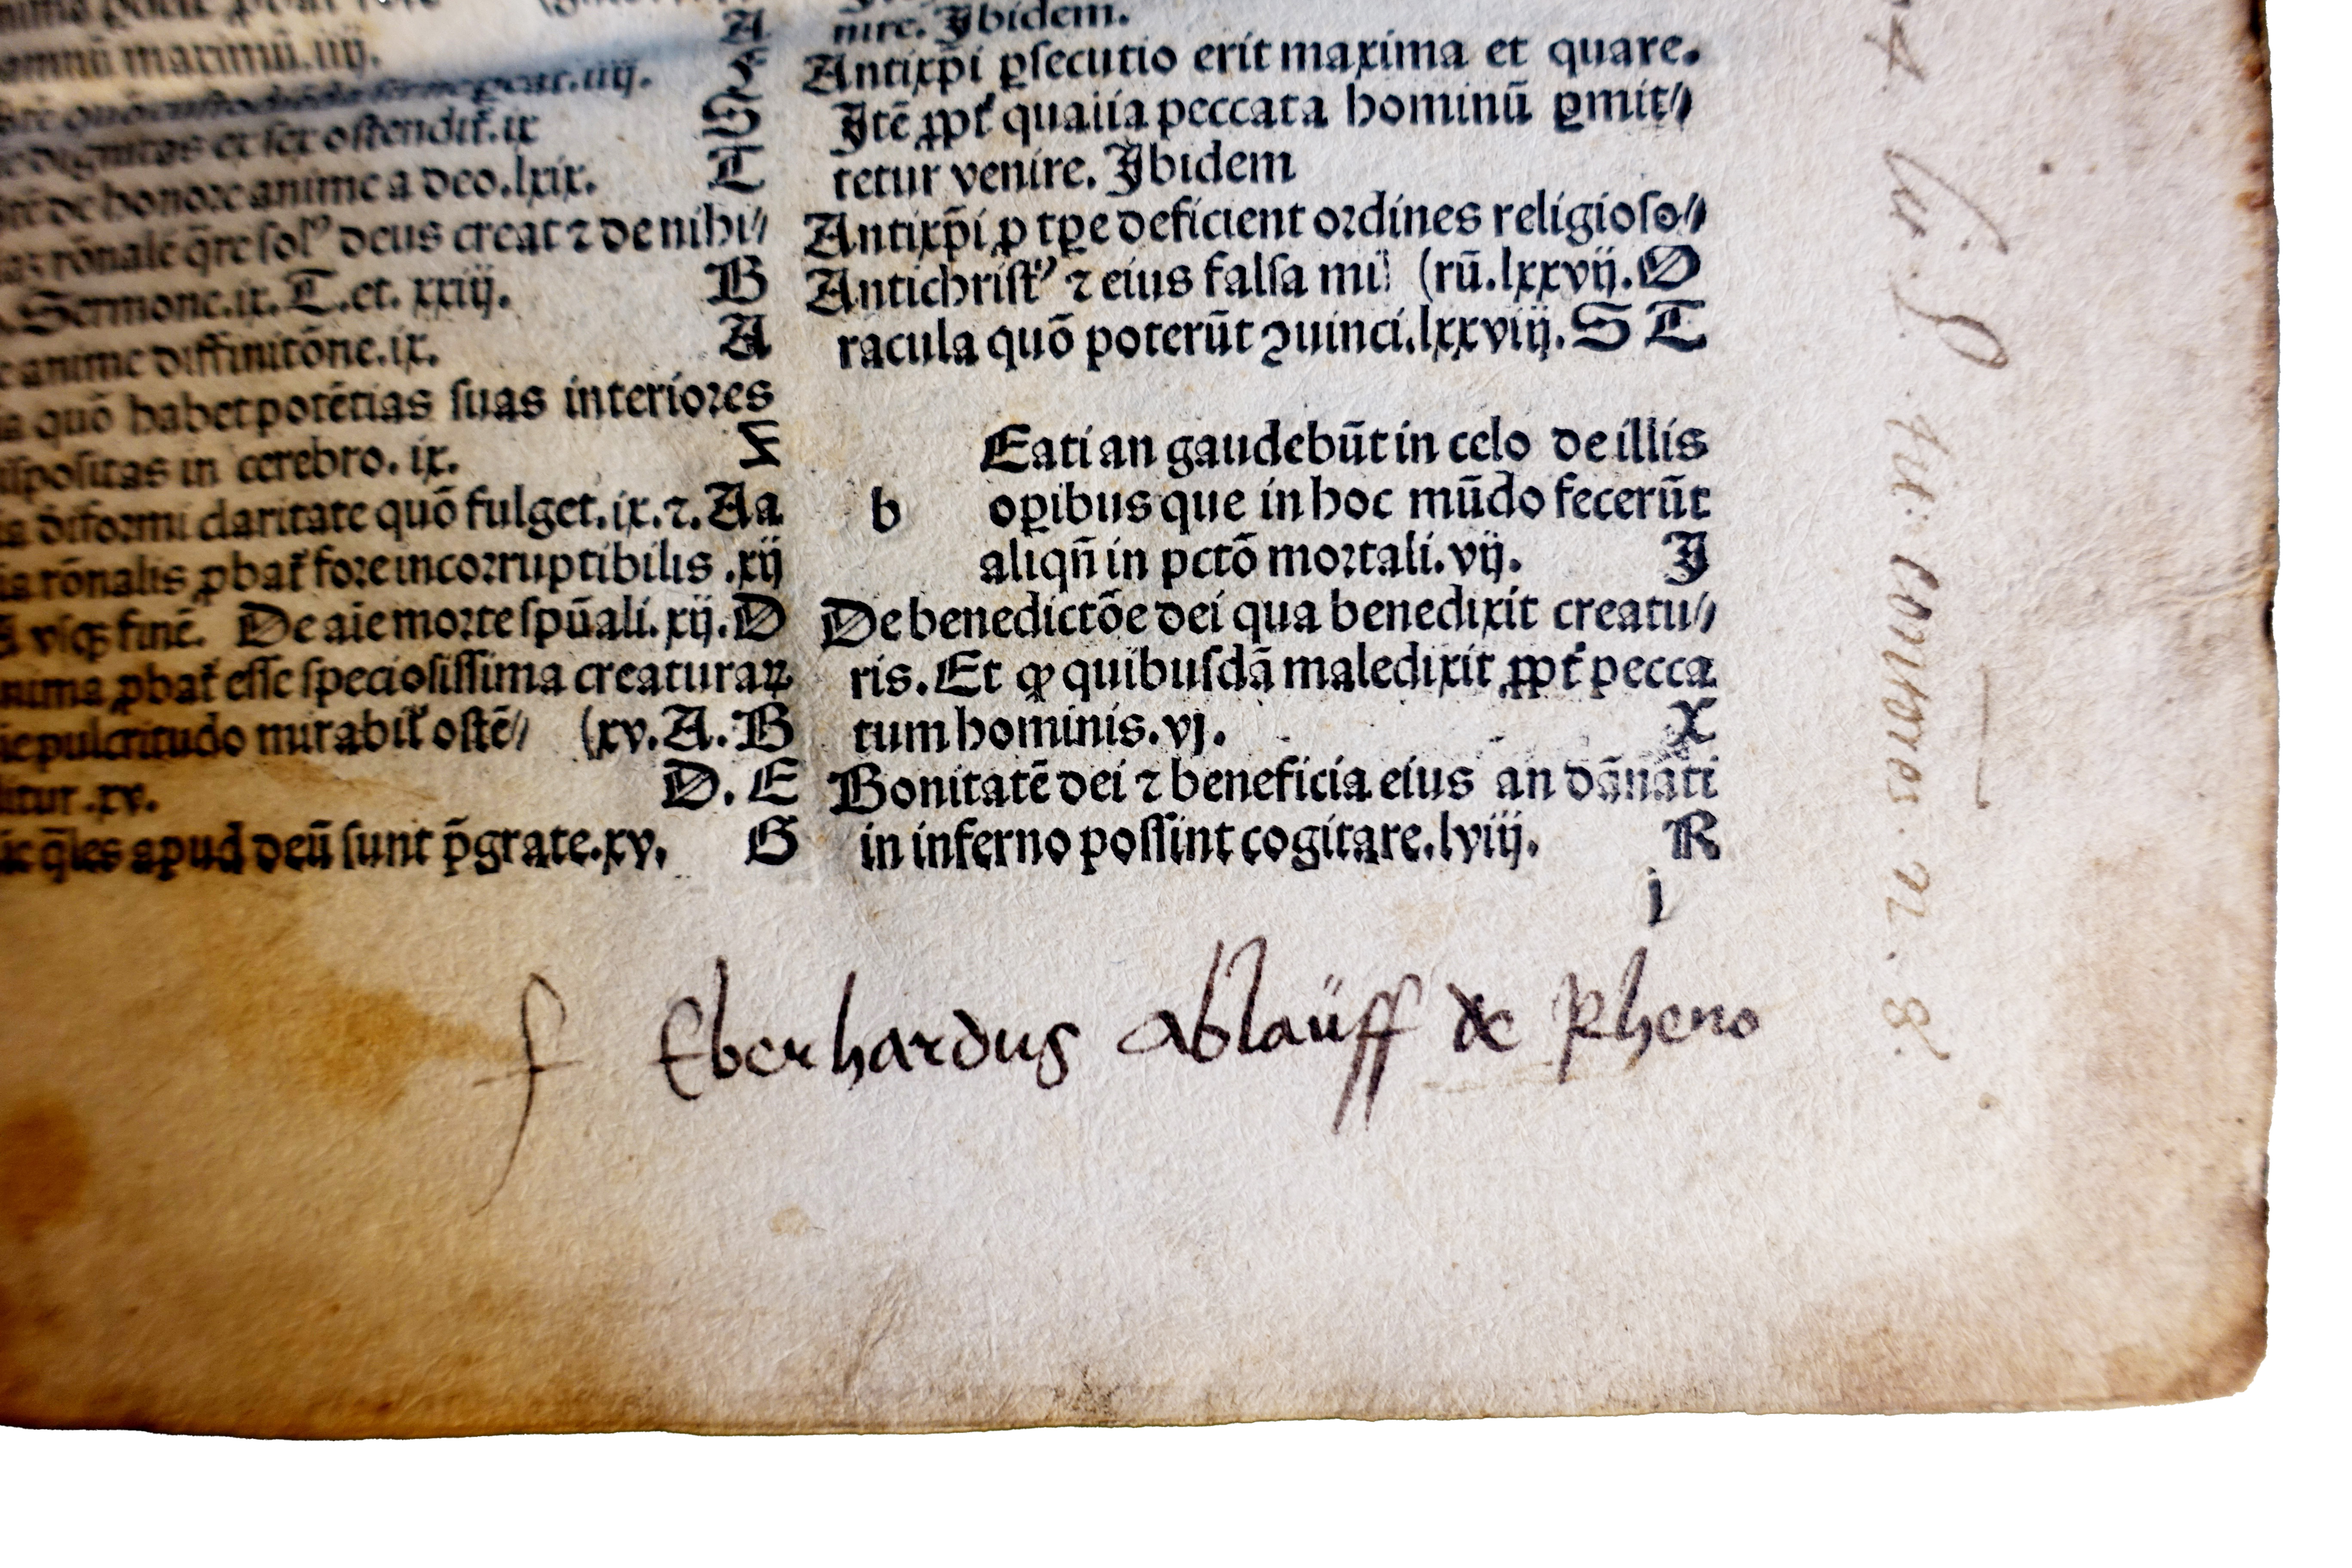 amnū maximū.iiij.
dignitas et sex ostendit̃.ix S
de honore anime a deo.lxix. T
rōnalē q̄re solꝰ deus creat ⁊ de nihi⸗
Sermone.ix.T.et. xxiij. B
anime diffinitōne.ix. A
quō habet potētias suas interiores
ispositas in cerebro. ix. X
claritate quō fulget.ix.⁊.Aa
rōnalis ꝓbat̃ fore incorruptibilis .xij
vsqꝫ finē. De aīe morte spūali.xij.D
nima ꝓbat̃ esse speciosissima creaturaꝝ
pulcritudo mirabil̃ ostē⸗ (xv.A.B
itur.xv. D.E
q̄les apud deū sunt p̄grate.xv. G
nire. Ibidem.
Antixp̄i ꝑsecutio erit maxima et quare.
Itē ꝓpt̃ peccata hominū ꝑmit⸗
tetur venire. Ibidem
Antixp̄i ꝓ tꝑe deficient ordines religioso⸗
Antichristꝰ ⁊ eius falsa mi (rū.lxxvij.O
racula quō poterūt ꝯuinci.lxxviij.S T
Eati an gaudebūt in celo de illis
b oꝑibus que in hoc mūdo fecerūt
aliqn̄ in pctō mortali.vij. I
De benedictōe dei qua benedixit creatu⸗
ris. Et ꝙ quibusdā maledixit ꝓpt̃ pecca
tum hominis.vj. X
Bonitatē dei ⁊ beneficia eius an dānati
in inferno possint cogitare.lviij. R
j
f Eberhardus Ablaüff de Rheno